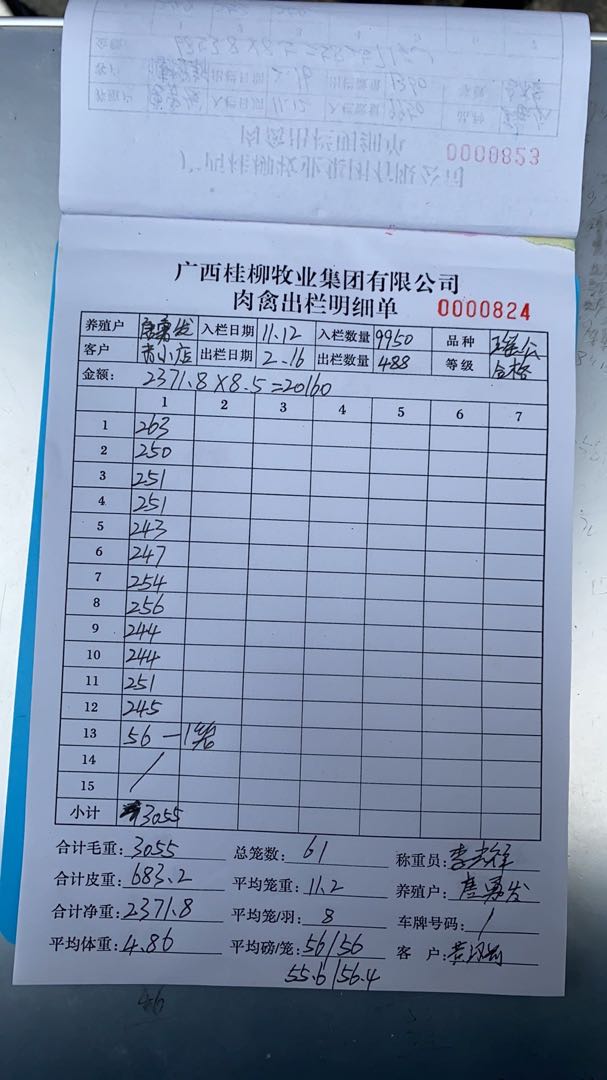 0000823
广西桂柳牧业集团有限公司
肉禽出栏明细单 0000824
养殖户 唐勇发 入栏日期 11.12 入栏数量 9950 品种
客户 黄小店 出栏日期 2.16 出栏数量 488 等级 合格
金额: 2371.8×8.5=20160
1 2 3 4 5 6 7
1 263
2 250
3 251
4 251
5 243
6 247
7 254
8 256
9 244
10 244
11 251
12 245
13 56 一1笼
14 /
15
小计 3055
合计毛重: 3055 总笼数: 61 称重员:
合计皮重: 683.2 平均笼重: 11.2 养殖户: 唐勇发
合计净重: 2371.8 平均笼/羽: 8 车牌号码: /
平均体重: 4.86 平均磅/笼: 56/56 客 户:
55.6/56.4